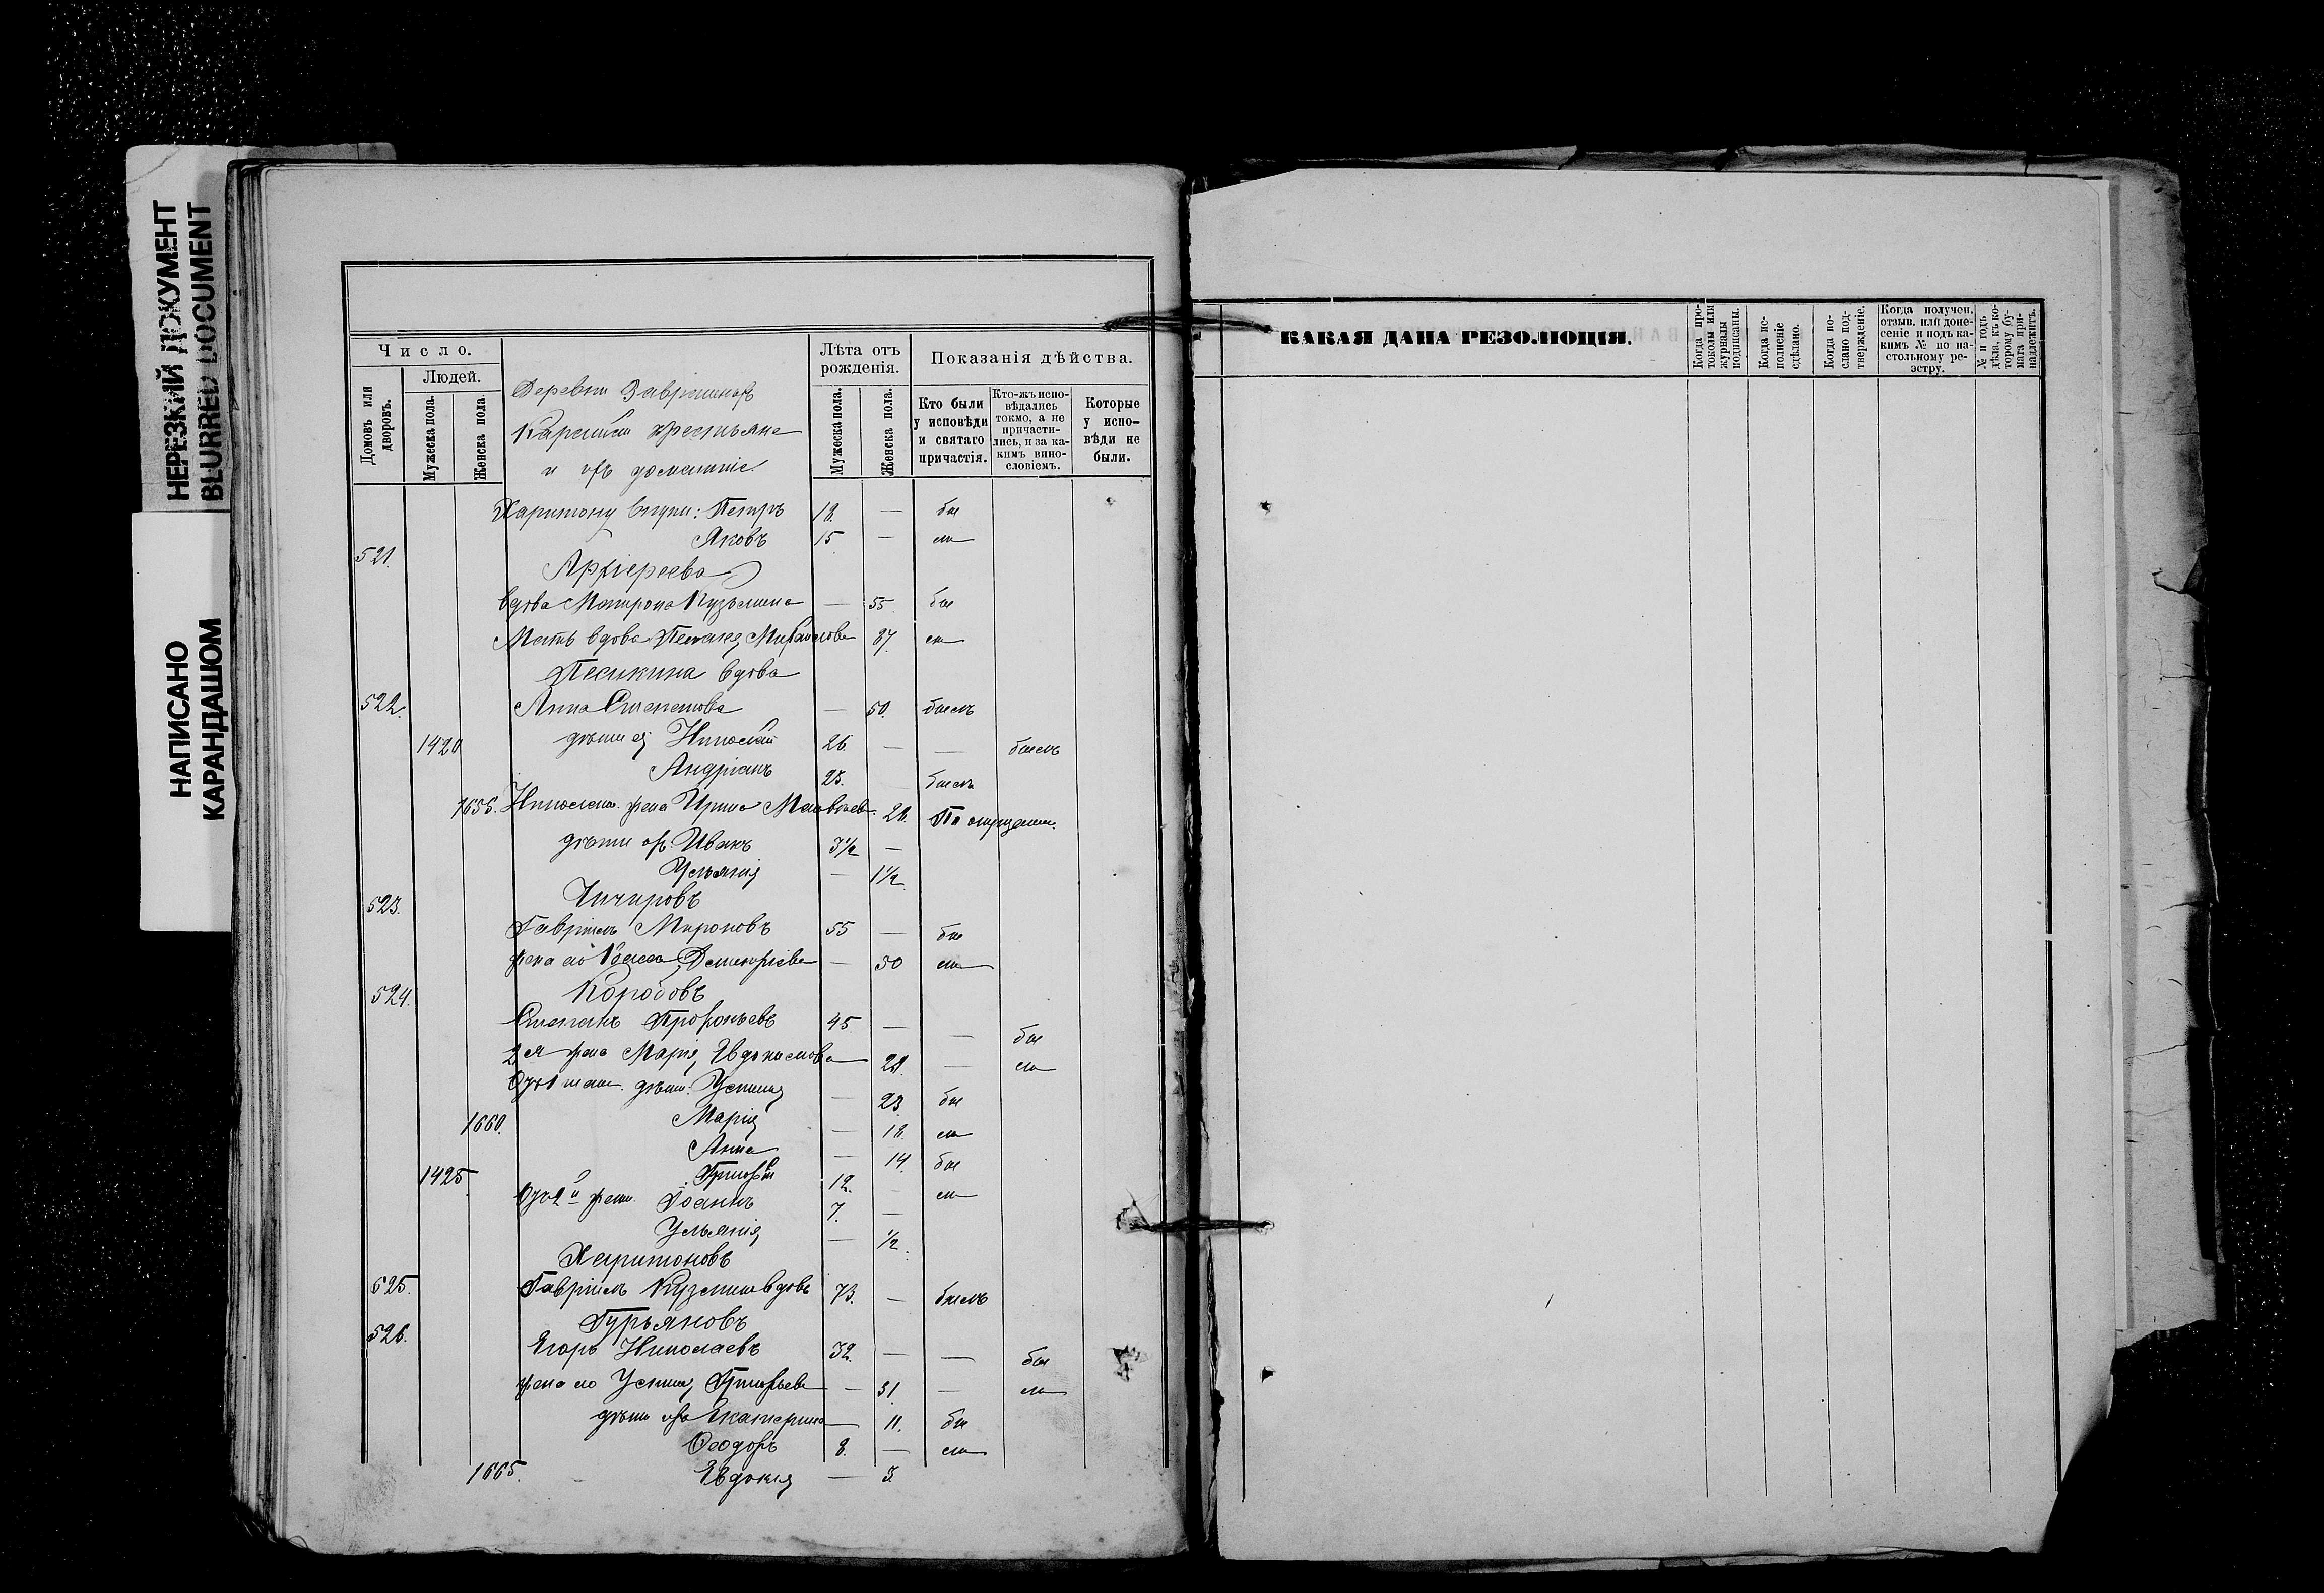 НЕРЕЗКИЙ ДОКУМЕНТ
BLURRED DOCUMENT
НАПИСАНО
КАРАНДАШОМ
Число.
Людей.
Домовъ или дворовъ.
Мужеска пола.
Женска пола.
Деревни
крестьяне
и ихъ домашніе
Лѣта отъ рожденія.
Мужеска пола.
Женска пола.
Показанія дѣйства.
Кто были у исповѣди и святаго причастія.
Кто-жъ исповѣдались токмо, а не причастились, и за какимъ винословіемъ.
Которые у исповѣди не были.
Харитону внуки: Петръ 18. —
Яковъ 15 —
521.
Архіереева
вдова Матрона Кузьмина — 55.
Мать вдова Михайлова 87.
Песикина вдова
522. Анна Степанова — 50. былъ
1420 дѣти ея Николай 26 — — былъ
Андріанъ 23. былъ
1655. Николая жена Ирина Матвѣев. 26. По опущен.
дѣти их. Иванъ 3 1/2 —
Ульянія — 1 1/2
523. Чичировъ
Гавріилъ Мироновъ 55 —
жена его Димитріева — 50
524. Коробовъ
Степанъ Прокопьевъ 45 — —
2я жена Марія Евдокимова 28. —
дѣти. Устинія — 23.
1660. Марія — 18.
Анна — 14.
1425. Григорій 12. —
жены Іоаннъ 7. —
Ульянія — 1/2.
Харитоновъ
525. Гавріилъ Кузмин вдовъ 73. — былъ
Гурьяновъ
526.
Егоръ Николаевъ 32. — —
жена его Устинія Григорьева — 31. —
дѣти ихъ Екатерина — 11.
Ѳеодоръ 8. —
1665. Евдокія — 3.
КАКАЯ ДАНА РЕЗОЛЮЦІЯ.
Когда протоколы или журналы подписаны.
Когда исполненіе сдѣлано.
Когда послано подтвержденіе.
Когда получен. отзыв. или донесеніе и подъ какимъ № по настольному реэстру.
№ и годъ дѣла, къ которому бумага принадлежитъ.